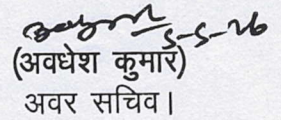 5-5-26
(अवधेश कुमार)
अवर सचिव।